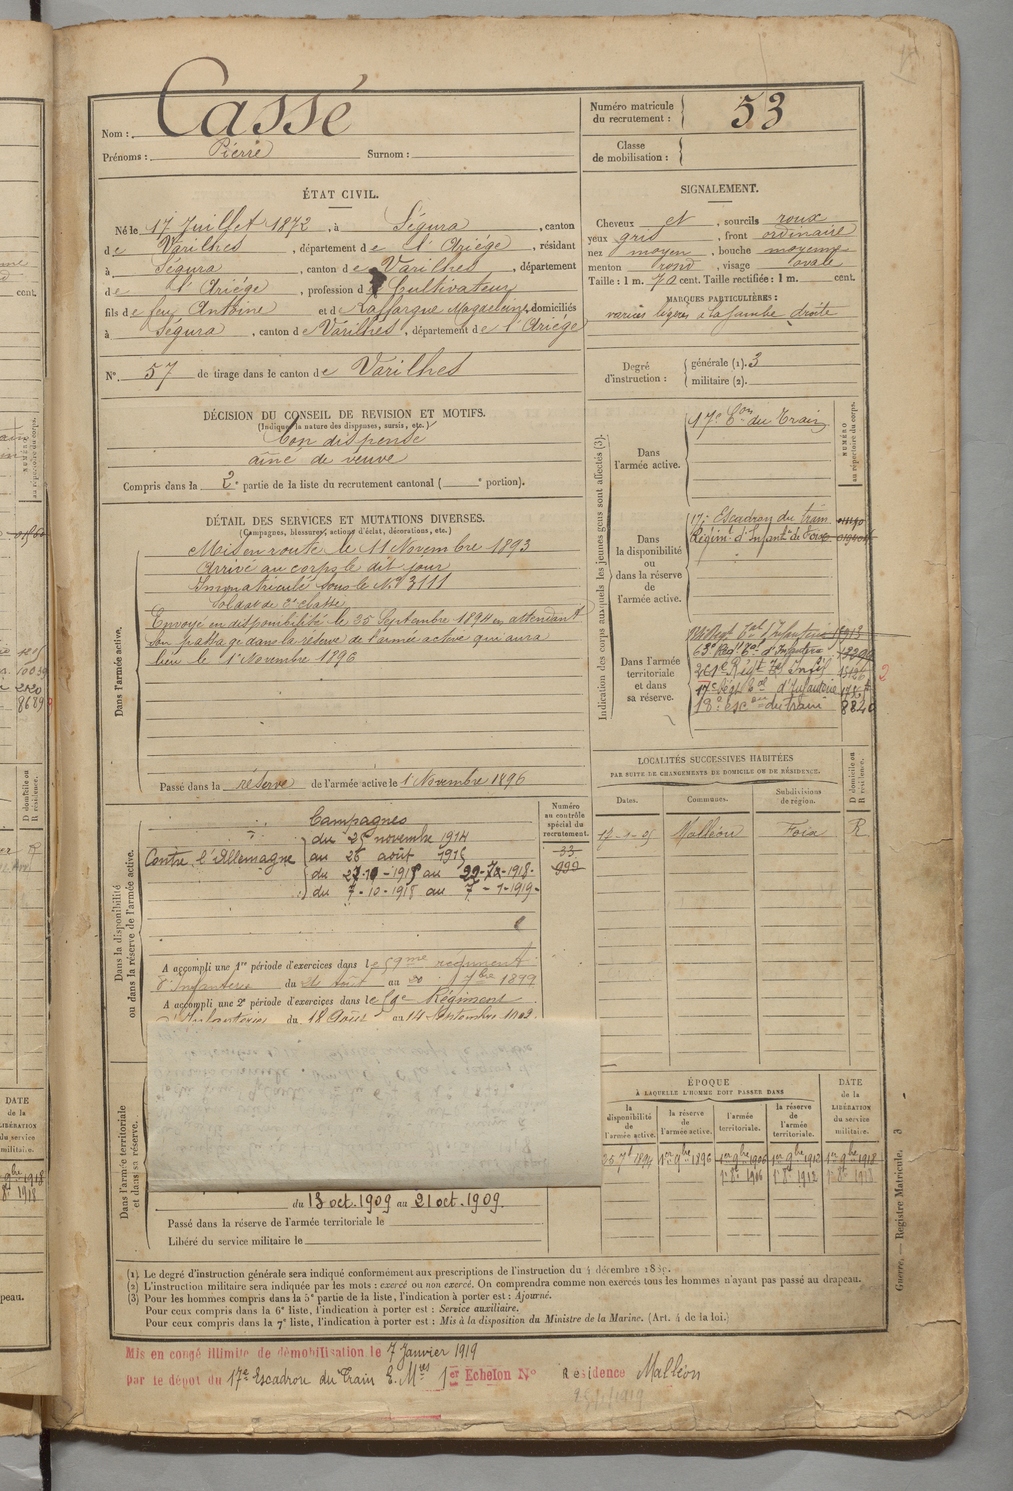 Nom : Cassé
Prénoms : Pierre Surnom :
Numéro matricule
du recrutement : 53
Classe
de mobilisation :
ÉTAT CIVIL.
Né le 17 Juillet 1872, à Ségura, canton
de Varilhes, département de l'Ariège, résidant
à Ségura, canton de Varilhes, département
de l'Ariège, profession de Cultivateur
fils de feu Antoine et de Laffargue Magdeleine, domiciliés
à Ségura, canton de Varilhes, département de l'Ariège
N° 57 de tirage dans le canton de Varilhes
SIGNALEMENT.
Cheveux et, sourcils roux
yeux gris, front ordinaire
nez moyen, bouche moyenne
menton rond, visage ovale
Taille : 1 m. 70 cent. Taille rectifiée : 1 m. cent.
MARQUES PARTICULIÈRES :
varices légères à la jambe droite
Degré
d'instruction :
générale (1). 3
militaire (2).
DÉCISION DU CONSEIL DE REVISION ET MOTIFS.
(Indiquer la nature des dispenses, sursis, etc.)
Bon dispensé
aîné de veuve
Compris dans la 2e partie de la liste du recrutement cantonal ( e portion).
DÉTAIL DES SERVICES ET MUTATIONS DIVERSES.
(Campagnes, blessures, actions d'éclat, décorations, etc.)
Dans l'armée active.
Mis en route le 11 Novembre 1893
Arrivé au corps le dit jour
Immatriculé sous le N° 3111
Soldat de 2e classe
Envoyé en disponibilité le 25 Septembre 1894 en attendant
son passage dans la réserve de l'armée active qui aura
lieu le 1er Novembre 1896
Passé dans la réserve de l'armée active le 1 Novembre 1896
Indication des corps auxquels les jeunes gens sont affectés (3).
NUMÉRO
au répertoire du corps.
Dans
l'armée active.
17e Eon du Train
Dans
la disponibilité
ou
dans la réserve
de
l'armée active.
17e Escadron du train
Régiment d'Infantie de Foix
Dans l'armée
territoriale
et dans
sa réserve.
18e escon du train 8840
2
LOCALITÉS SUCCESSIVES HABITÉES
PAR SUITE DE CHANGEMENTS DE DOMICILE OU DE RÉSIDENCE.
Dates. Communes. Subdivisions
de région.
D domicile ou
R résidence.
Malléon Foix R
Dans la disponibilité
ou dans la réserve de l'armée active.
Numéro
au contrôle
spécial du
recrutement.
33
999
Campagnes
Contre l'Allemagne
du 25 novembre 1914
au 26 août 1915
du 7-10-1918 au 7-1-1919
A accompli une 1re période d'exercices dans le 59me régiment
d'Infanterie du août au 7bre 1899
A accompli une 2e période d'exercices dans le Régiment
d'Infanterie du 18 Août au 14 Septembre 1902
Dans l'armée territoriale
et dans sa réserve.
du 13 oct. 1909 au 21 oct. 1909.
Passé dans la réserve de l'armée territoriale le
Libéré du service militaire le
ÉPOQUE
À LAQUELLE L'HOMME DOIT PASSER DANS
la
disponibilité
de
l'armée active.
la réserve
de
l'armée active.
l'armée
territoriale.
la réserve
de
l'armée
territoriale.
DATE
de la
LIBÉRATION
du service
militaire.
25 7bre 1894 1er 9bre 1896 1er 9bre 1906 1er 9bre 1912 1er 9bre 1918
1er 8bre 1906 1er 8bre 1912 1er 8bre 1918
Guerre. — Registre Matricule. 3
(1) Le degré d'instruction générale sera indiqué conformément aux prescriptions de l'instruction du 4 décembre 1889.
(2) L'instruction militaire sera indiquée par les mots : exercé ou non exercé. On comprendra comme non exercés tous les hommes n'ayant pas passé au drapeau.
(3) Pour les hommes compris dans la 5e partie de la liste, l'indication à porter est : Ajourné.
Pour ceux compris dans la 6e liste, l'indication à porter est : Service auxiliaire.
Pour ceux compris dans la 7e liste, l'indication à porter est : Mis à la disposition du Ministre de la Marine. (Art. 4 de la loi.)
Mis en congé illimité de démobilisation le 7 Janvier 1919
par le dépot du 17e Escadron du Train 1er Echelon N° Résidence Malléon